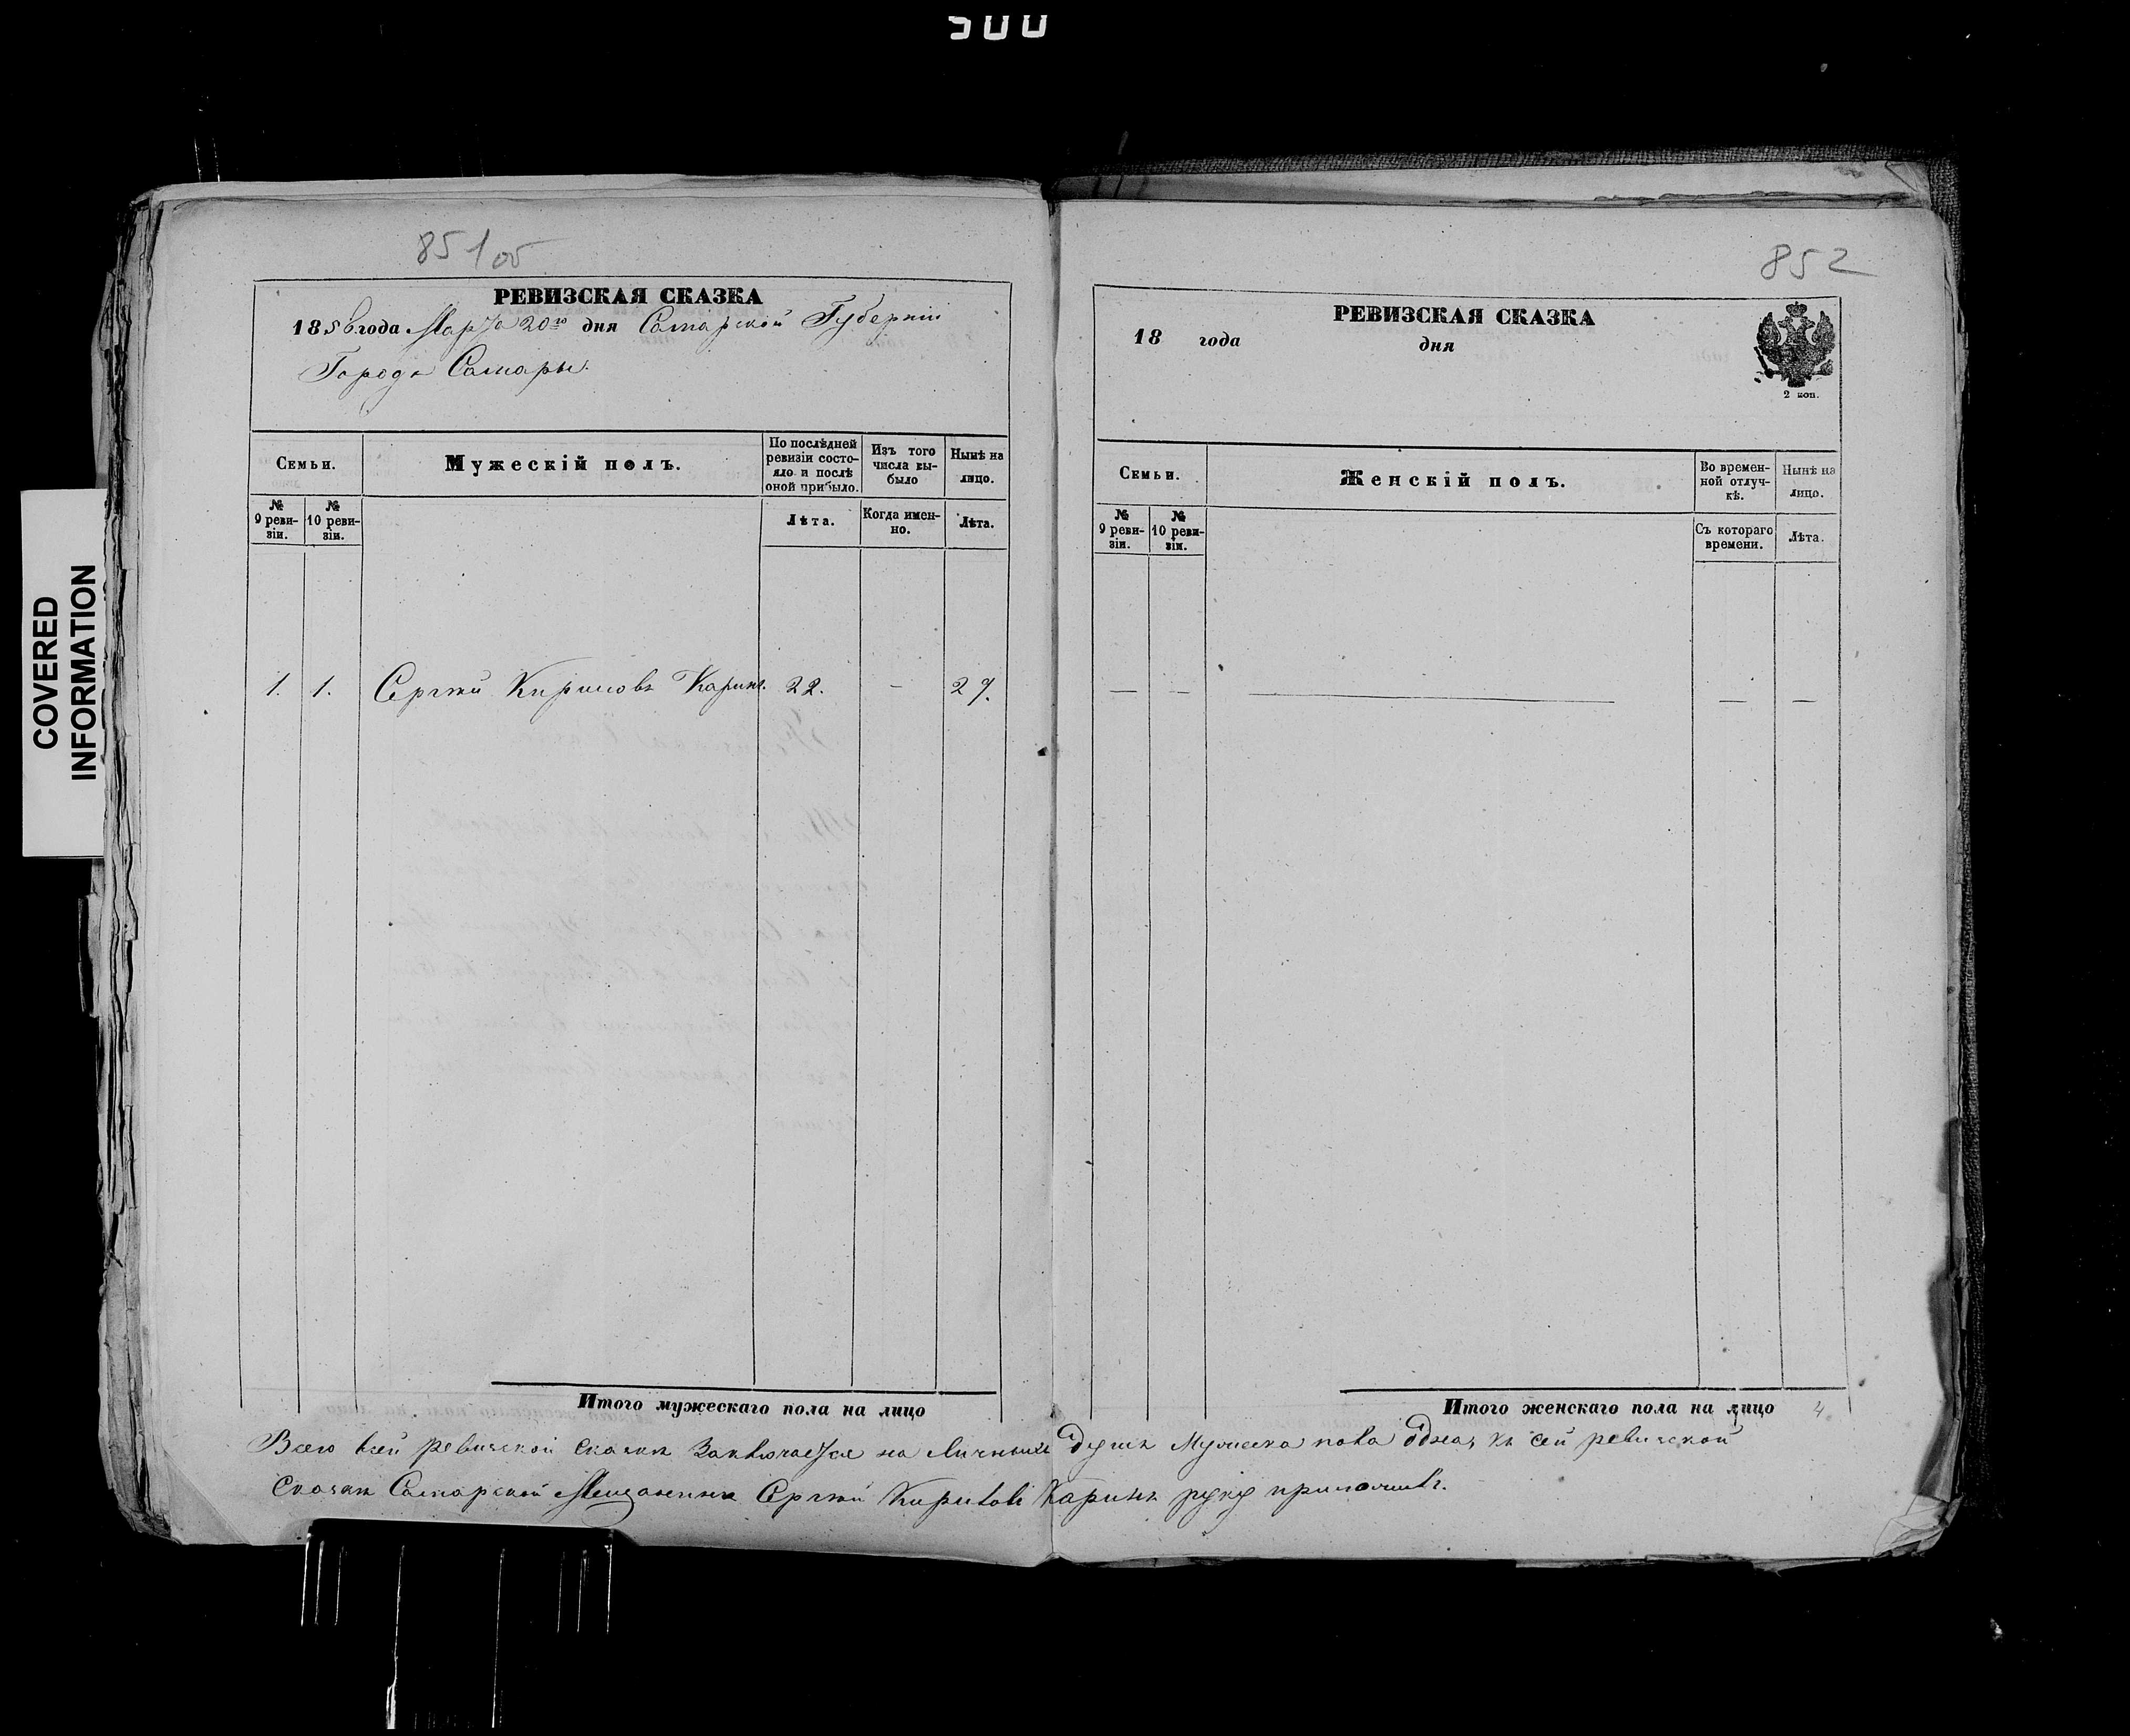 500
COVERED
INFORMATION
851об
РЕВИЗСКАЯ СКАЗКА
1856 года Марта 20го дня Самарской Губерніи
Города Самары.
Семьи.
Мужескій полъ.
По послѣдней ревизіи состояло и послѣ оной прибыло.
Изъ того числа выбыло
Нынѣ на лицо.
№ 9 ревизіи.
№ 10 ревизіи.
Лѣта.
Когда именно.
Лѣта.
1. 1. Сергѣй Кириловъ Каринъ. 22. — 27.
Итого мужескаго пола на лицо
852
РЕВИЗСКАЯ СКАЗКА
18 года дня
2 коп.
Семьи.
Женскій полъ.
Во временной отлучкѣ.
Нынѣ на лицо.
№ 9 ревизіи.
№ 10 ревизіи.
Съ котораго времени.
Лѣта.
— — — — —
Итого женскаго пола на лицо
Всего всей ревизской сказки Заключается на Личныхъ душъ Мужеска пола Одна, къ сей ревизской
Сказки Самарской Мещанинъ Сергѣй Кириловъ Каринъ руку приложилъ.